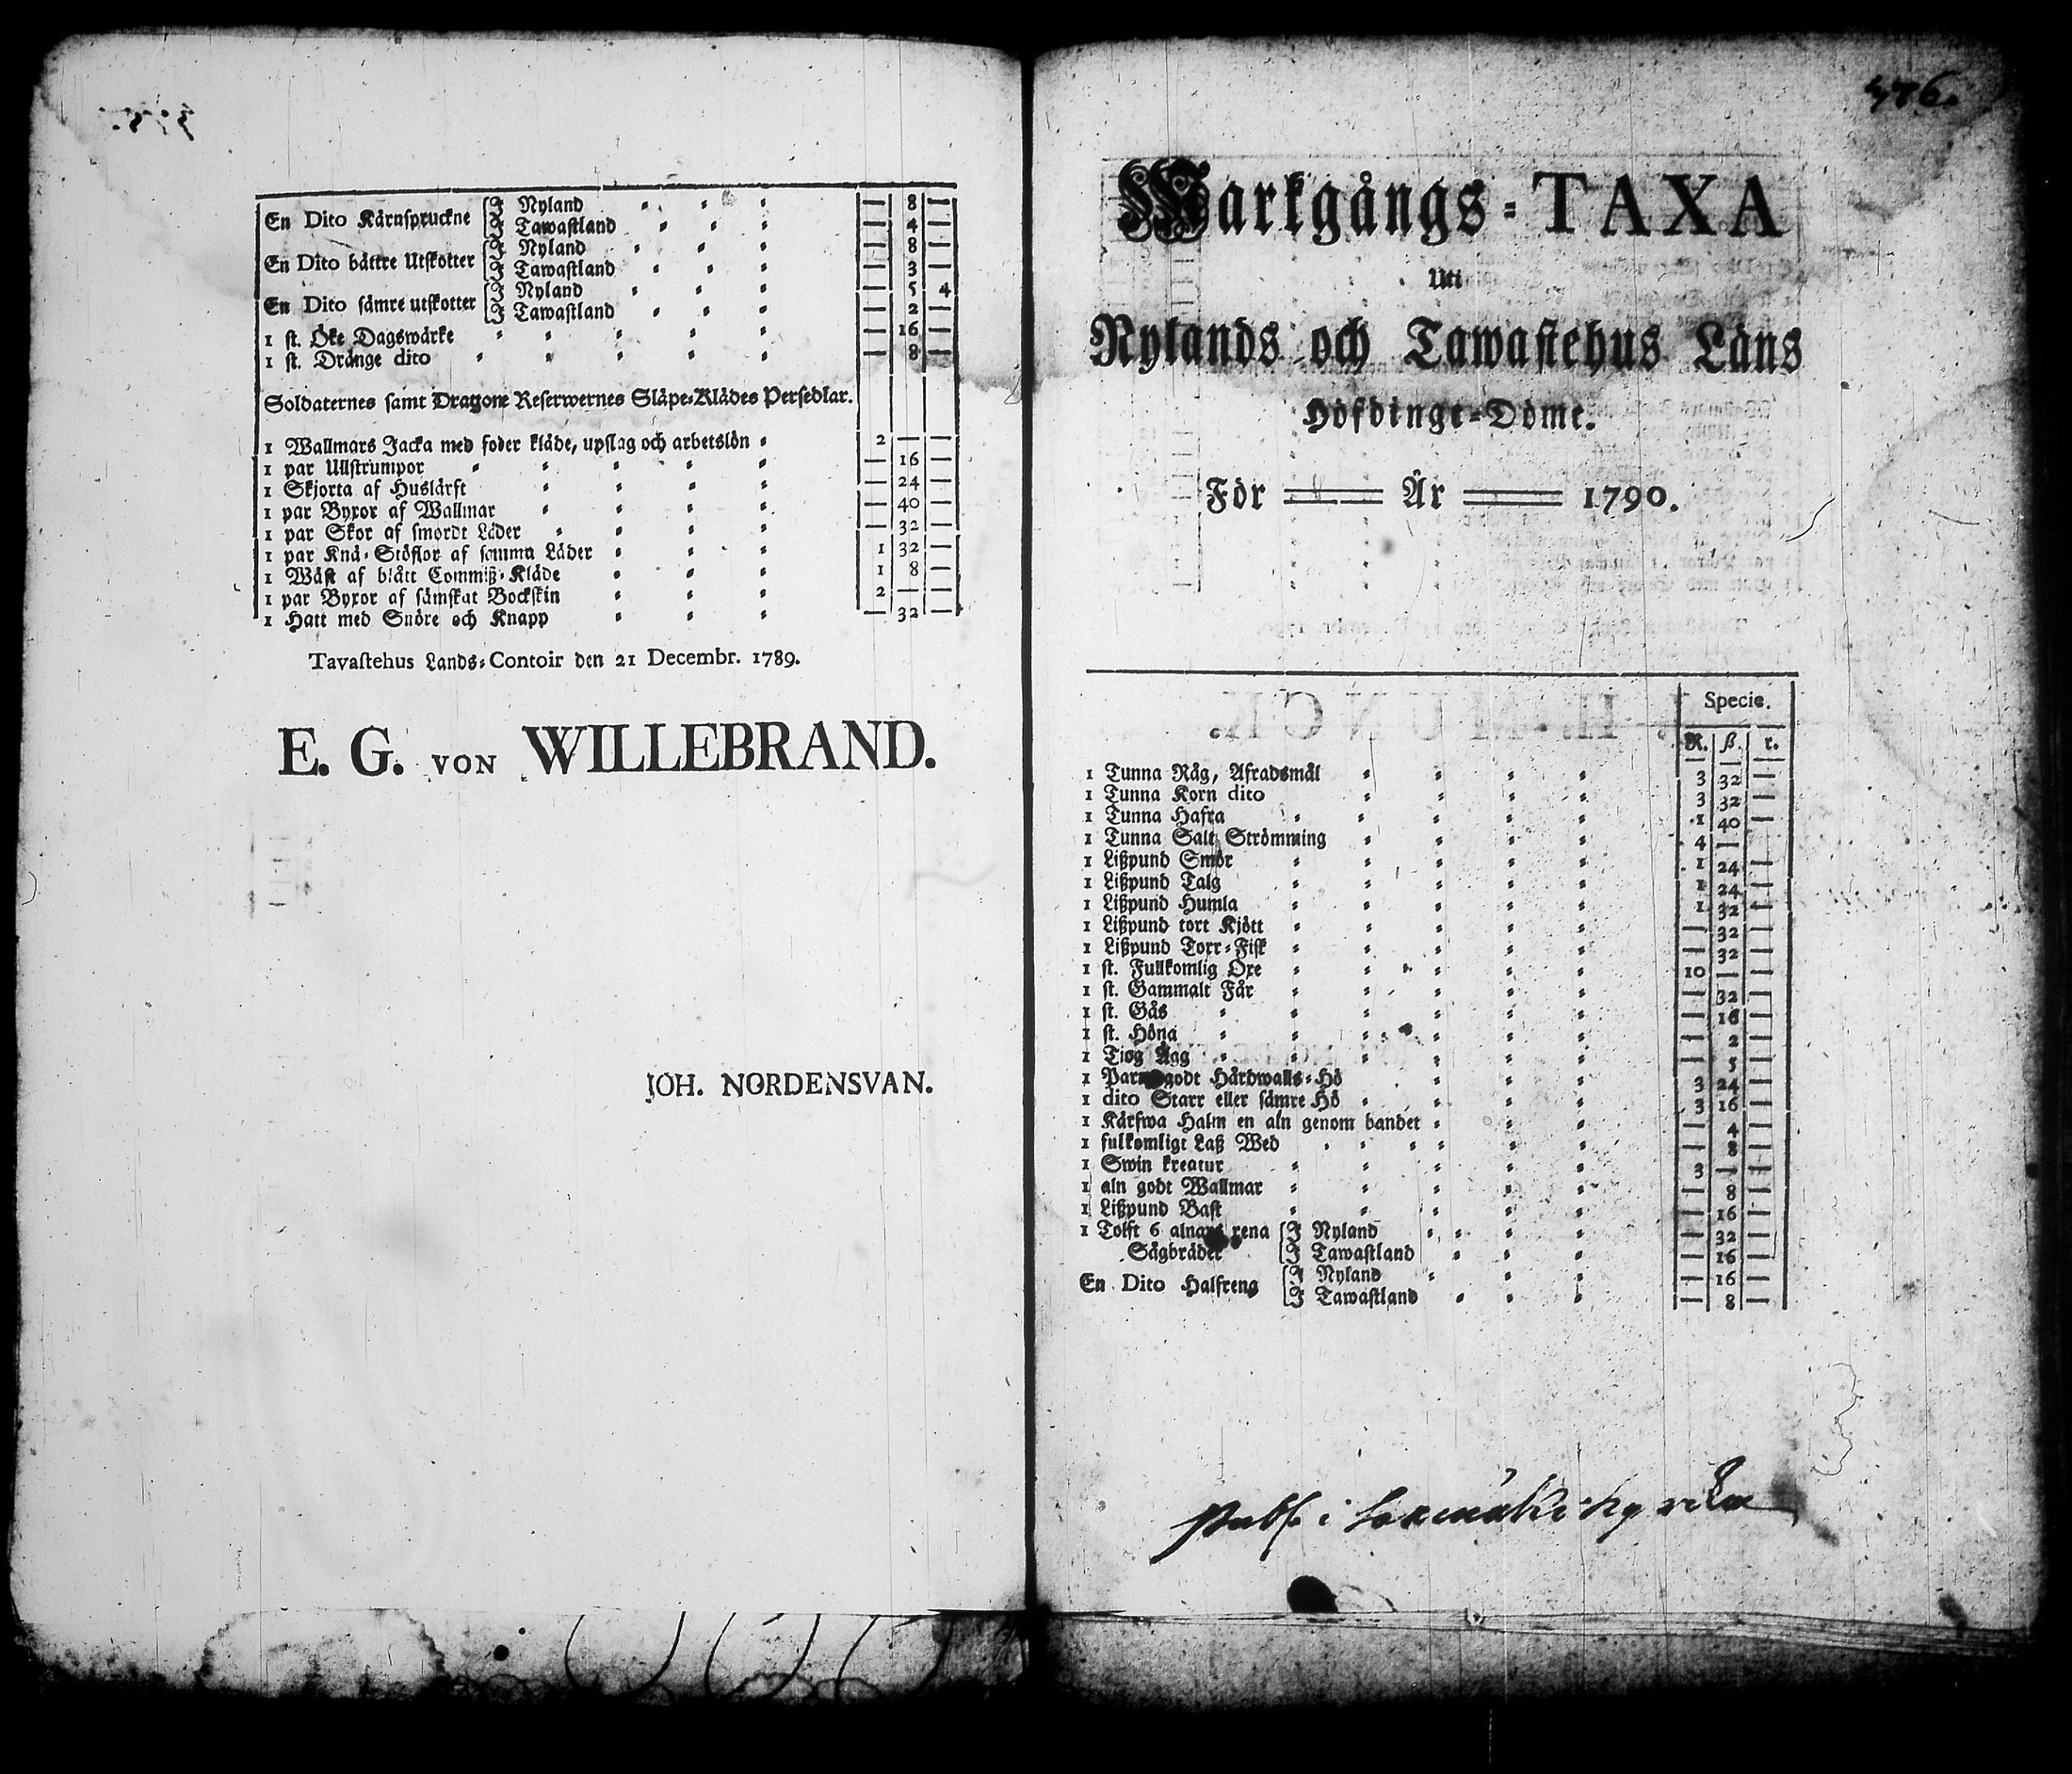 En Dito Kärnspruckne { I Nyland — 8 —
I Tawastland — 4 —
En Dito båttre Utskotter { I Nyland — 8 —
I Tawastland — 3 —
En Dito sämre utskotter { I Nyland — 5 4
I Tawastland — 2 —
1 st. Öke Dagswärke — 16 —
1 st. Dränge dito — 8 —
Soldaternes samt Dragone Reserwernes Släpe-Klädes Persedlar.
1 Wallmars Jacka med foder kläde, upslag och arbetslön 2 — —
1 par Ullstrumpor — 16 —
1 Skjorta af Huslärft — 24 —
1 par Byxor af Wallmar — 40 —
1 par Skor af smordt Läder — 32 —
1 par Knä-Stöflor af samma Läder 1 32 —
1 Wäst af blått Commiß-Kläde 1 8 —
1 par Byxor af sämskat Bockskin 2 — —
1 Hatt med Snöre och Knapp — 32 —
Tavastehus Lands-Contoir den 21 Decembr. 1789.
E. G. VON WILLEBRAND.
JOH. NORDENSVAN.
376.
Markgångs-TAXA
Uti
Nylands och Tawastehus Läns
Höfdinge-Döme.
För År 1790.
Specie.
R. ß. r.
1 Tunna Råg, Afradsmål 3 32 —
1 Tunna Korn dito 3 32 —
1 Tunna Hafra 1 40 —
1 Tunna Salt Strömming 4 — —
1 Lißpund Smör 1 24 —
1 Lißpund Talg 1 24 —
1 Lißpund Humla 1 32 —
1 Lißpund tort Kjött — 32 —
1 Lißpund Torr-Fisk — 32 —
1 st. Fullkomlig Oxe 10 — —
1 st. Gammalt Får — 32 —
1 st. Gås — 16 —
1 st. Höna — 2 —
1 Tiog Ägg — 5 —
1 Parm godt Hårdwalls-Hö 3 24 —
1 dito Starr eller sämre Hö 3 16 —
1 Kärfwa Halm en aln genom bandet — 4 —
1 fulkomligt Laß Wed — 8 —
1 Swin kreatur 3 — —
1 aln godt Wallmar — 8 —
1 Lißpund Bast — 16 —
1 Tolft 6 alnars rena { I Nyland — 32 —
Sågbräder I Tawastland — 16 —
En Dito Halfrena { I Nyland — 16 —
I Tawastland — 8 —
i